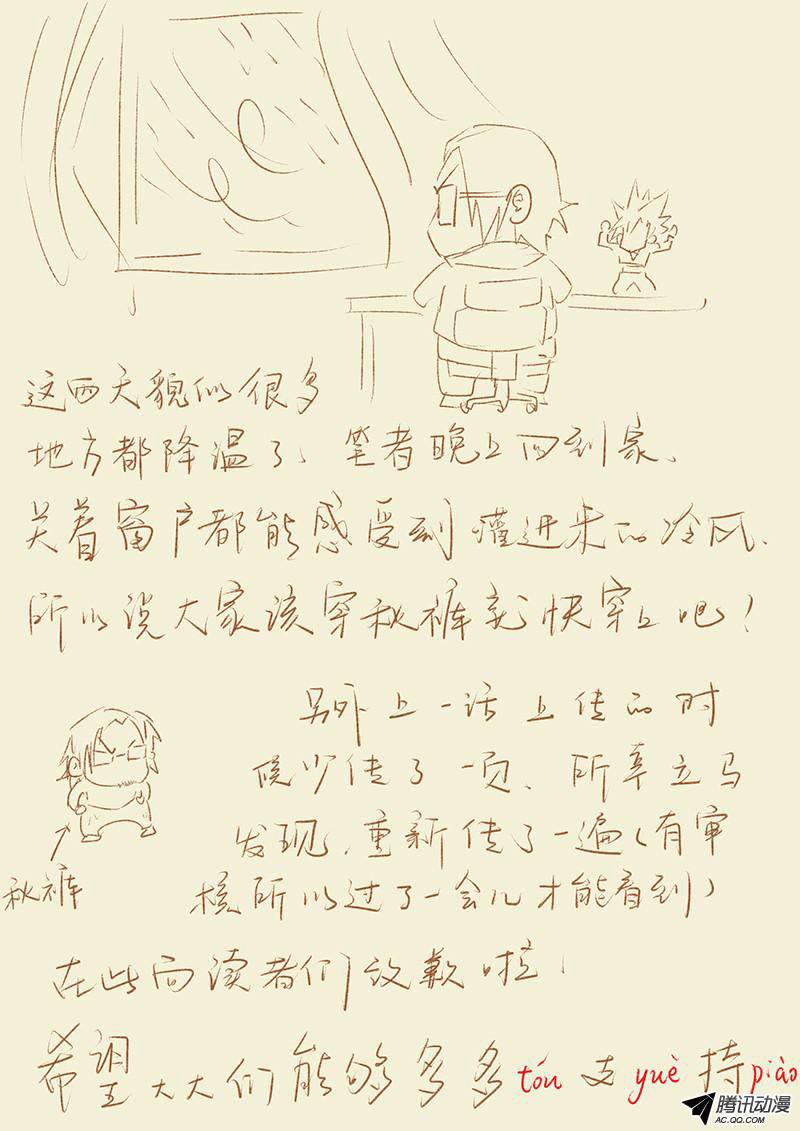 这两天貌似很多
地方都降温了、笔者晚上回到家、
关着窗户都能感受到灌进来的冷风、
所以说大家该穿秋裤就快穿上吧！
另外上一话上传的时
候少传了一页、所幸立马
发现、重新传了一遍(有审
核所以过了一会儿才能看到)
秋裤
在此向读者们致歉啦！
希望大大们能够多多tóu支yuè持piào
腾讯动漫
AC.QQ.COM